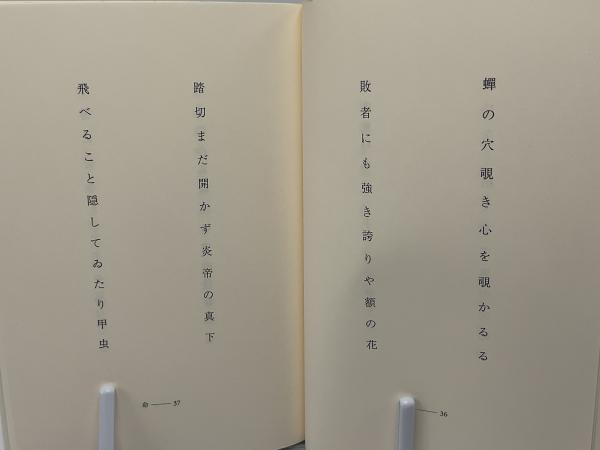 蟬の穴覗き心を覗かるる
敗者にも強き誇りや額の花
36
踏切まだ開かず炎帝の真下
飛べること隠してゐたり甲虫
37